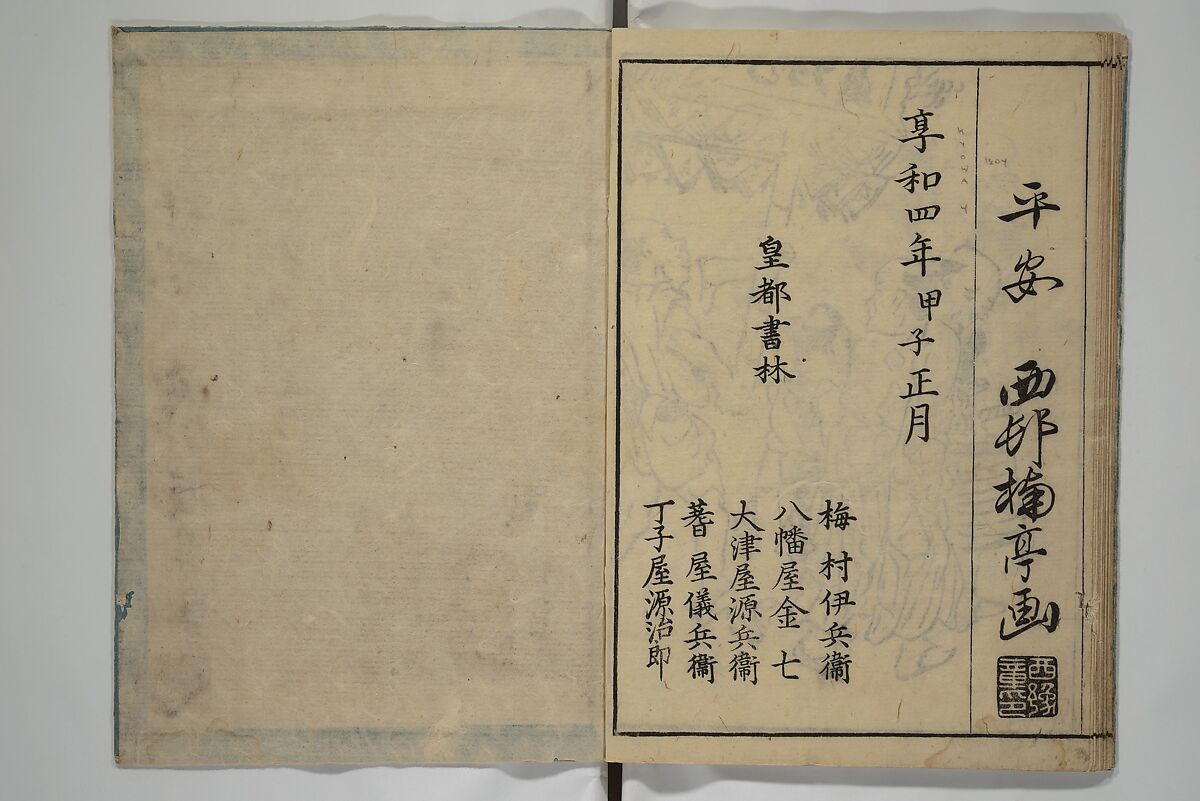 平安 西邨楠亭画
1804
KYOWA 4
享和四年甲子正月
皇都書林
梅村伊兵衞
八幡屋金七
大津屋源兵衞
蓍屋儀兵衞
丁子屋源治郎